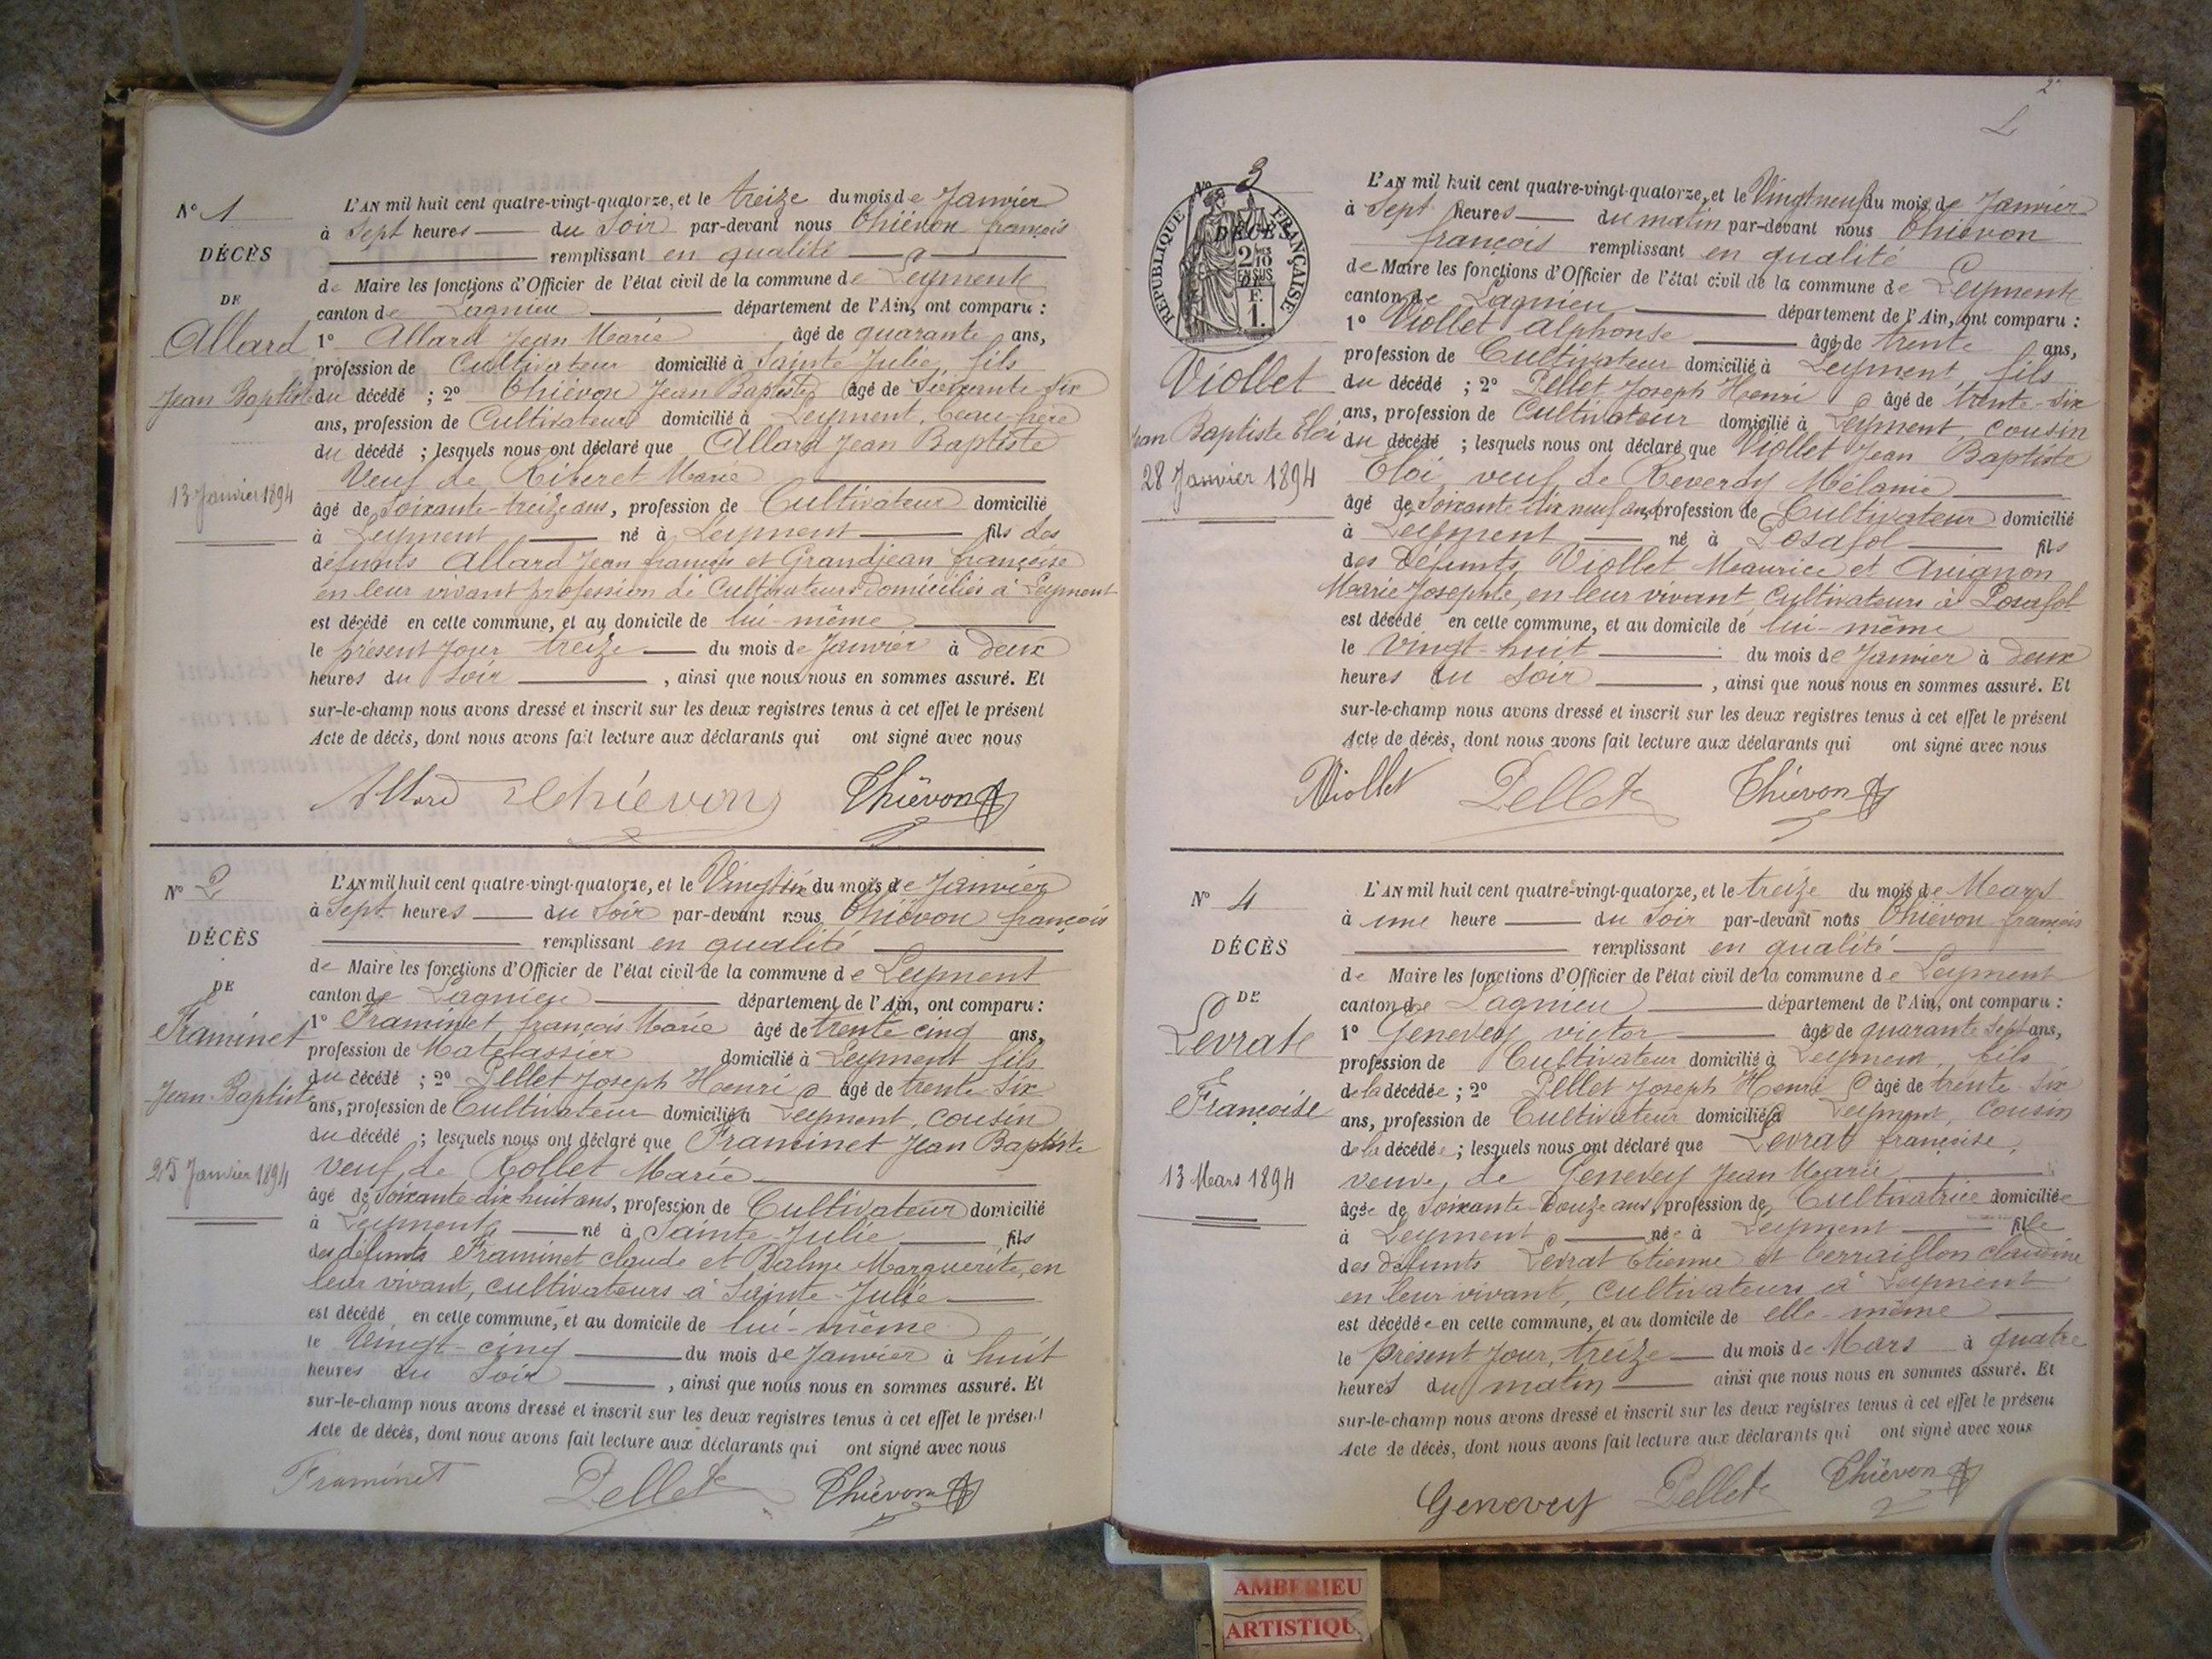 N° 1
DÉCÈS
DE
Allard
Jean Baptiste
13 Janvier 1894
L'AN mil huit cent quatre-vingt-quatorze, et le treize du mois de Janvier
à Sept heures du Soir par-devant nous Thiévon françois
remplissant en qualité
de Maire les fonctions d'Officier de l'état civil de la commune de Leyment
canton de Lagnieu département de l'Ain, ont comparu :
1° Allard Jean Marie âgé de quarante ans,
profession de Cultivateur domicilié à Sainte Julie, fils
du décédé ; 2° Thiévon Jean Baptiste âgé de Soixante six
ans, profession de Cultivateur domicilié à Leyment, beau-frère
du décédé ; lesquels nous ont déclaré que Allard Jean Baptiste
Veuf de Riberet Marie
âgé de Soixante-treize ans, profession de Cultivateur domicilié
à Leyment né à Leyment fils des
défunts Allard Jean françois et Grandjean françoise
en leur vivant profession de Cultivateurs Domiciliés à Leyment
est décédé en cette commune, et au domicile de lui-même
le présent jour treize du mois de Janvier à deux
heures du Soir , ainsi que nous nous en sommes assuré. Et
sur-le-champ nous avons dressé et inscrit sur les deux registres tenus à cet effet le présent
Acte de décès, dont nous avons fait lecture aux déclarants qui ont signé avec nous
Allard Thiévon Thiévon
N° 2
DÉCÈS
DE
Framinet
Jean-Baptiste
25 Janvier 1894
L'AN mil huit cent quatre-vingt-quatorze, et le Vingt six du mois de Janvier
à Sept heures du Soir par-devant nous Thiévon françois
remplissant en qualité
de Maire les fonctions d'Officier de l'état civil de la commune de Leyment
canton de Lagnieu département de l'Ain, ont comparu :
1° Framinet françois Marie âgé de trente cinq ans,
profession de Matelassier domicilié à Leyment fils
du décédé ; 2° Pellet Joseph Henri âgé de trente six
ans, profession de Cultivateur domicilié à Leyment, cousin
du décédé ; lesquels nous ont déclaré que Framinet Jean Baptiste
veuf de Rollet Marie
âgé de Soixante dix huit ans, profession de Cultivateur domicilié
à Leyment né à Sainte-Julie fils
des défunts Framinet claude et Balme Marguerite, en
leur vivant, cultivateurs à Sainte-Julie
est décédé en cette commune, et au domicile de lui-même
le Vingt-cinq du mois de Janvier à huit
heures du Soir , ainsi que nous nous en sommes assuré. Et
sur-le-champ nous avons dressé et inscrit sur les deux registres tenus à cet effet le présent
Acte de décès, dont nous avons fait lecture aux déclarants qui ont signé avec nous
Framinet Pellet Thiévon
2
N° 3
DÉCÈS
RÉPUBLIQUE FRANÇAISE
Viollet
Jean Baptiste Eloi
28 Janvier 1894
L'AN mil huit cent quatre-vingt-quatorze, et le Vingt neuf du mois de Janvier
à Sept heures du matin par-devant nous Thiévon
françois remplissant en qualité
de Maire les fonctions d'Officier de l'état civil de la commune de Leyment
canton de Lagnieu département de l'Ain, ont comparu :
1° Viollet Alphonse âgé de trente ans,
profession de Cultivateur domicilié à Leyment, fils
du décédé ; 2° Pellet Joseph Henri âgé de trente-six
ans, profession de Cultivateur domicilié à Leyment, cousin
du décédé ; lesquels nous ont déclaré que Viollet Jean Baptiste
Eloi veuf de Reverdy Mélanie
âgé de Soixante dix neuf ans, profession de Cultivateur domicilié
à Leyment né à Posafol fils
des Défunts Viollet Maurice et Avignon
Marie Josephte, en leur vivant Cultivateurs à Posafol
est décédé en cette commune, et au domicile de lui-même
le Vingt-huit du mois de Janvier à deux
heures du Soir , ainsi que nous nous en sommes assuré. Et
sur-le-champ nous avons dressé et inscrit sur les deux registres tenus à cet effet le présent
Acte de décès, dont nous avons fait lecture aux déclarants qui ont signé avec nous
Viollet Pellet Thiévon
N° 4
DÉCÈS
DE
Levrat
Françoise
13 Mars 1894
L'AN mil huit cent quatre-vingt-quatorze, et le treize du mois de Mars
à une heure du Soir par-devant nous Thiévon françois
remplissant en qualité
de Maire les fonctions d'Officier de l'état civil de la commune de Leyment
canton de Lagnieu département de l'Ain, ont comparu :
1° Genevey victor âgé de quarante sept ans,
profession de Cultivateur domicilié à Leyment, fils
de la décédée ; 2° Pellet Joseph Henri âgé de trente-six
ans, profession de Cultivateur domicilié à Leyment, cousin
de la décédée ; lesquels nous ont déclaré que Levrat françoise,
veuve de Genevey Jean Marie
âgée de Soixante-Douze ans, profession de Cultivatrice domiciliée
à Leyment née à Leyment fille
des défunts Levrat Etienne et Verraillon claudine
en leur vivant, cultivateurs à Leyment
est décédée en cette commune, et au domicile de elle-même
le présent Jour, treize du mois de Mars à quatre
heures du matin ainsi que nous nous en sommes assuré. Et
sur-le-champ nous avons dressé et inscrit sur les deux registres tenus à cet effet le présent
Acte de décès, dont nous avons fait lecture aux déclarants qui ont signé avec nous
Genevey Pellet Thiévon
AMBERIEU
ARTISTIQU